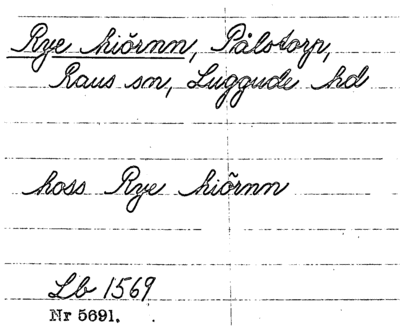 Rye hiörnn, Pålstorp,
Raus sn, Luggude hd
hoss Rye hiörnn
Lb 1569
Nr 5691.